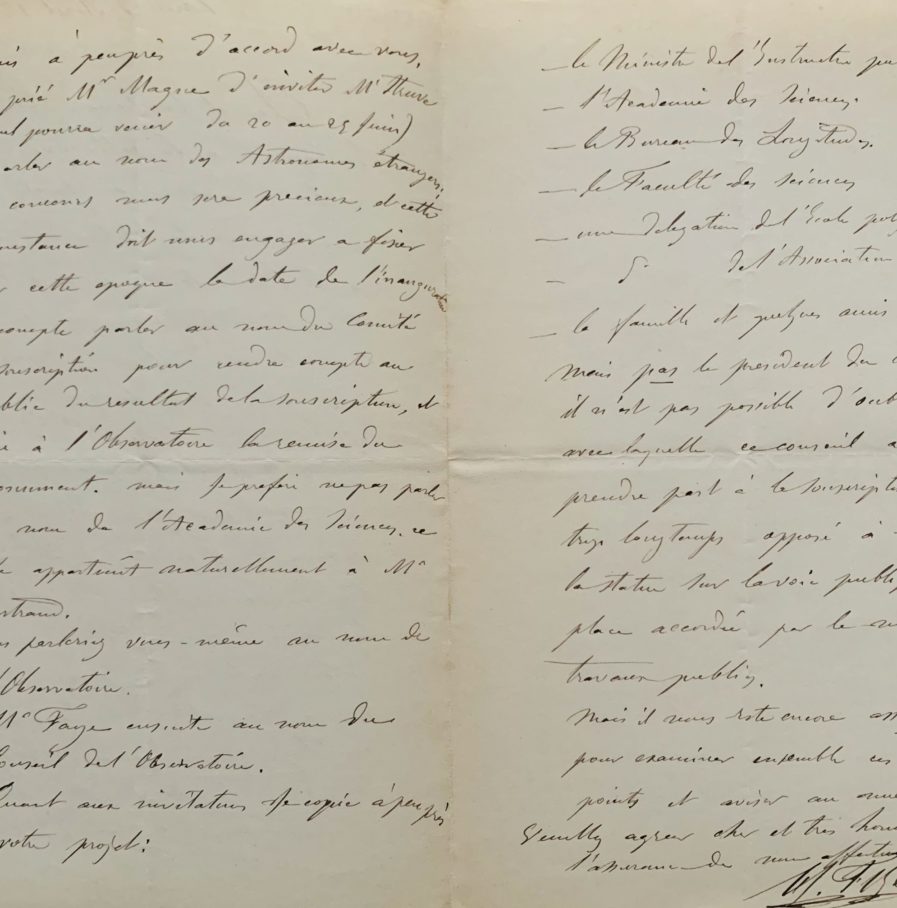 à peuprès d'accord avec vous,
prié Mr Magne d'inviter Mr Struve
pourra venir du 20 au 25 juin)
parler au nom des Astronomes étrangers.
concours nous sera precieux, et cette
doit nous engager a fixer
cette epoque la date de l'inauguration
compte parler au nom du Comité
souscription pour rendre compte au
du resultat de la souscription, et
à l'Observatoire la remise du
monument. mais je prefere ne pas parler
nom de l'Academie des Sciences. ce
appartient naturellement à Mr
parleriez vous-même au nom de
l'Observatoire.
Mr Faye ensuite au nom du
Conseil de l'Observatoire.
Quant aux invitations je copie à peu près
votre projet:
— le Ministre de l'Instruction
— l'Academie des Sciences.
— le Bureau des Longitudes.
— la Faculté des Sciences
— une delegation de l'Ecole
— de l'Association
— la famille et quelques amis
Mais pas le president du
il n'est pas possible
avec laquelle ce conseil
prendre part à la
trop longtemps opposé à
la statue sur la voie
place accordée par le
travaux publics.
Mais il nous reste encore
pour examiner ensemble ces
points et aviser au
Veuillez agreer cher et très
l'assurance de mon